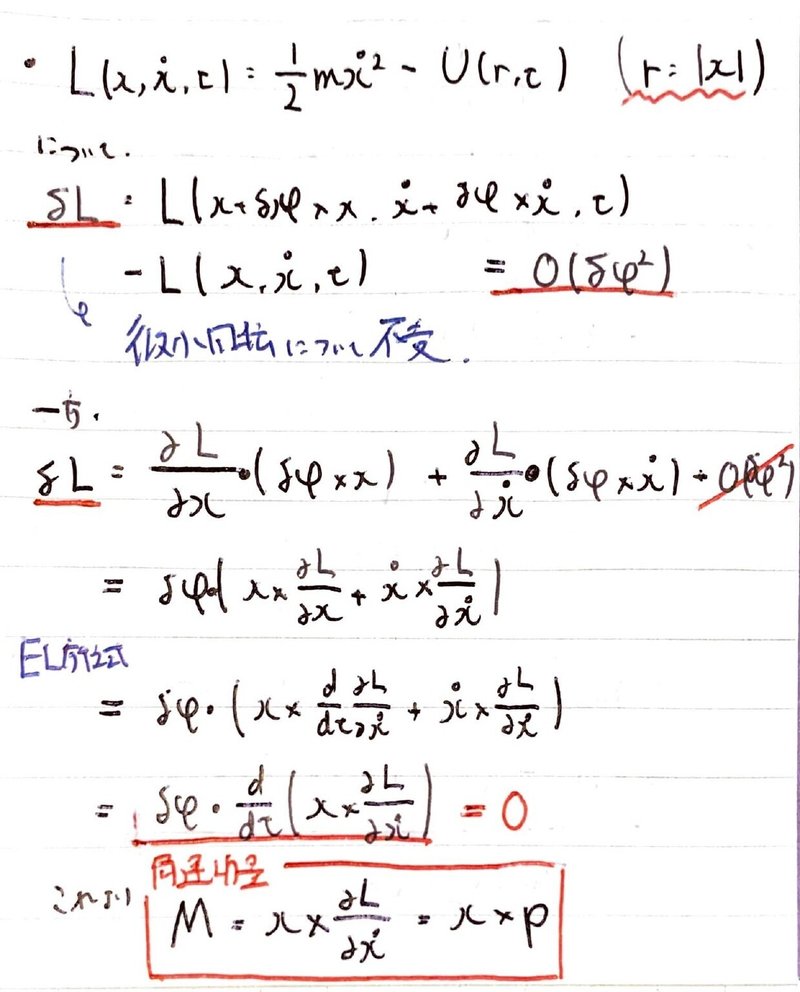 ・ L(x, ẋ, t) = 1/2 mẋ² - U(r, t) (r = |x|)
について.
δL = L(x + δφ × x, ẋ + δφ × ẋ, t)
- L(x, ẋ, t) = O(δφ²)
微小回転について不変.
一方.
δL = ∂L/∂x・(δφ × x) + ∂L/∂ẋ・(δφ × ẋ) + O(δφ²)
= δφ・(x × ∂L/∂x + ẋ × ∂L/∂ẋ)
EL方程式
= δφ・(x × d/dt ∂L/∂ẋ + ẋ × ∂L/∂ẋ)
= δφ・d/dt (x × ∂L/∂ẋ) = 0
これより 角運動量
M = x × ∂L/∂ẋ = x × p